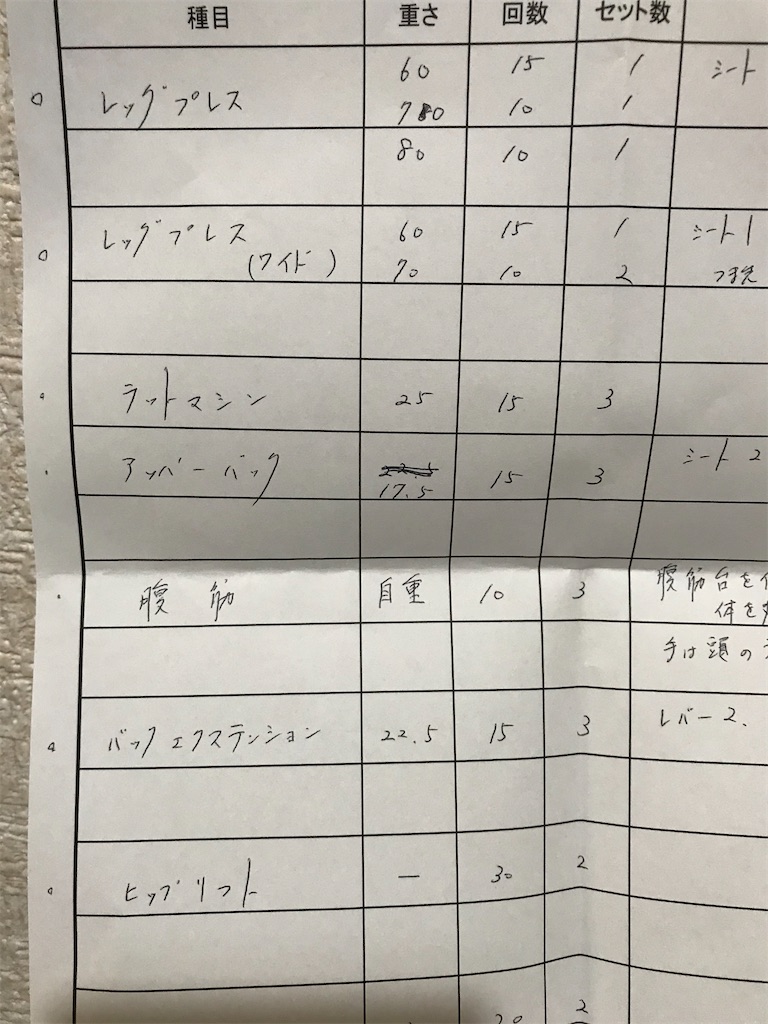 種目 重さ 回数 セット数
60 15 1 シート
レッグプレス 70 10 1
80 10 1
レッグプレス 60 15 1 シート1
(ワイド) 70 10 2 つま先
ラットマシン 25 15 3
アッパーバック 22.5 シート2
17.5 15 3
腹筋 自重 10 3 腹筋台を
体を
手は頭の
バックエクステンション 22.5 15 3 レバー2.
ヒップリフト — 30 2
20 2